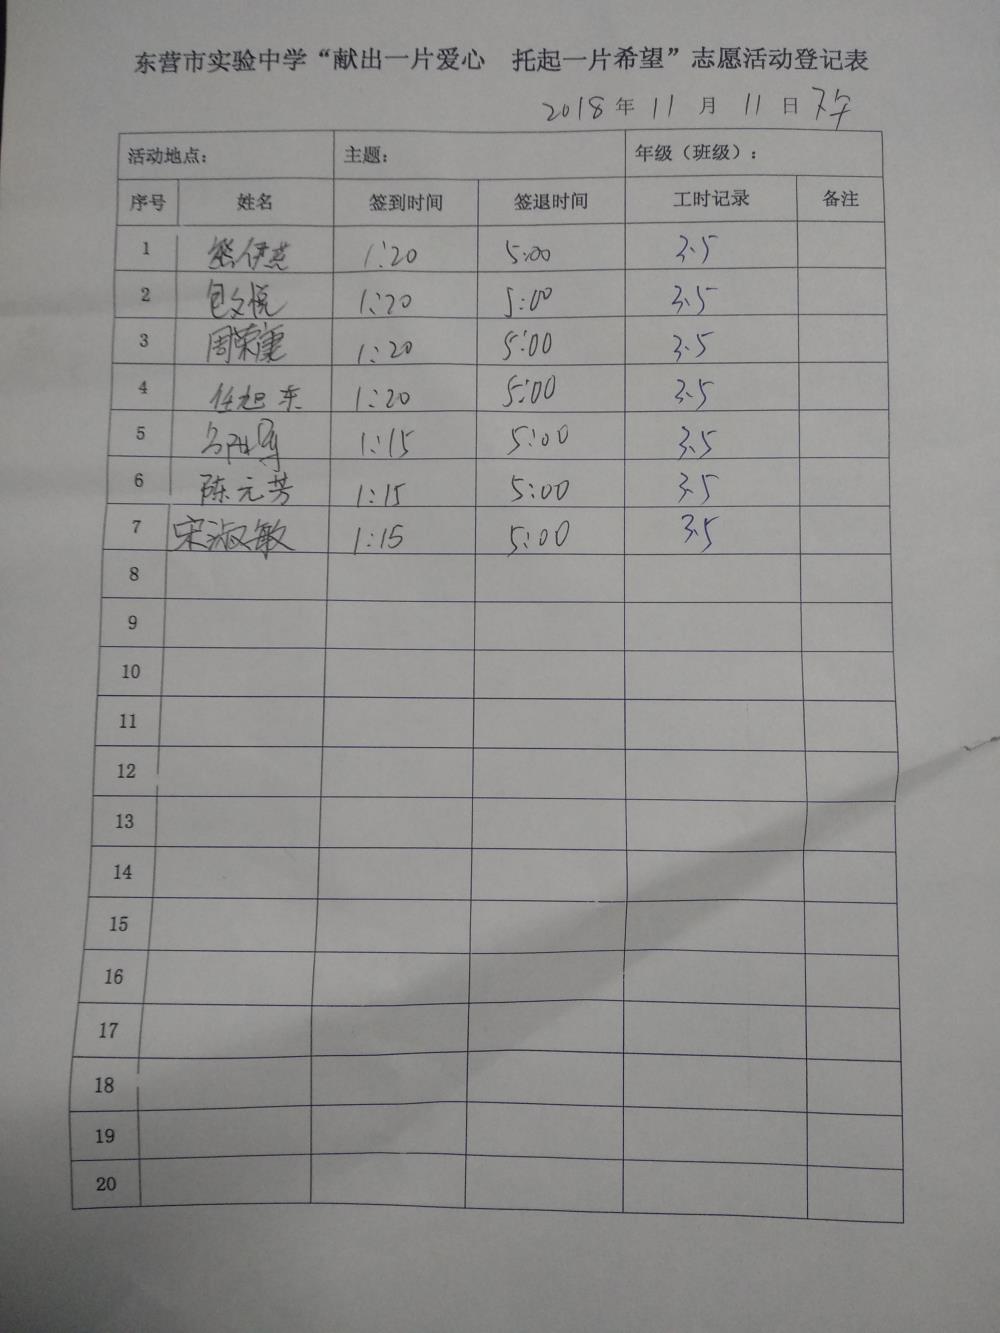 东营市实验中学“献出一片爱心 托起一片希望”志愿活动登记表
2018年11月11日 下午
活动地点： 主题： 年级（班级）：
序号 姓名 签到时间 签退时间 工时记录 备注
1 熊伊燕 1:20 5:00 3.5
2 包文悦 1:20 5:00 3.5
3 周荣康 1:20 5:00 3.5
4 任旭东 1:20 5:00 3.5
5 1:15 5:00 3.5
6 陈元芳 1:15 5:00 3.5
7 宋淑敏 1:15 5:00 3.5
8
9
10
11
12
13
14
15
16
17
18
19
20